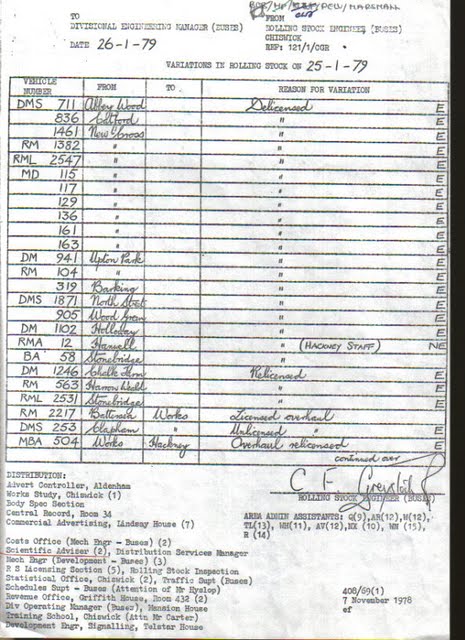 TO
DIVISIONAL ENGINEERING MANAGER (BUSES)
FROM
ROLLING STOCK ENGINEER (BUSES)
CHISWICK
DATE 26-1-79
REF: 121/1/CGR
VARIATIONS IN ROLLING STOCK ON 25-1-79
VEHICLE NUMBER FROM TO REASON FOR VARIATION
DMS 711 Abbey Wood Delicensed E
836 Catford " E
1461 New Cross " E
RM 1382 " " E
RML 2547 " " E
MD 115 " " E
117 " " E
129 " " E
136 " " E
161 " " E
163 " " E
DM 941 Upton Park " E
RM 104 " " E
319 Barking " E
DMS 1871 North Street " E
905 Wood Green " E
DM 1102 Holloway " E
RMA 12 Hanwell " (HACKNEY STAFF) NE
BA 58 Stonebridge "
DM 1246 Chalk Farm Relicensed E
RM 563 Harrow Weald " E
RML 2531 Stonebridge " E
RM 2217 Battersea Works Licensed overhaul
DMS 253 Clapham " Unlicensed " E
MBA 504 Works Hackney Overhaul relicensed E
continued over
DISTRIBUTION:
Advert Controller, Aldenham
Works Study, Chiswick (1)
Body Spec Section
Central Record, Room 34
Commercial Advertising, Lindsey House (7)
ROLLING STOCK ENGINEER (BUSES)
AREA ADMIN ASSISTANTS: Q(9),AB(12),W(12),
TL(13), WH(11), AV(12),HX (10), NN (15),
R (14)
Costs Office (Mech Engr - Buses) (2)
Scientific Adviser (2), Distribution Services Manager
Mech Engr (Development - Buses) (3)
R S Licensing Section (5), Rolling Stock Inspection
Statistical Office, Chiswick (2), Traffic Supt (Buses)
Schedules Supt - Buses (Attention of Mr Hyslop)
Revenue Office, Griffith House, Room 432 (2)
Div Operating Manager (Buses), Mansion House
Training School, Chiswick (Attn Mr Carter)
Development Engr, Signalling, Telstar House
408/69(1)
7 November 1978
ef